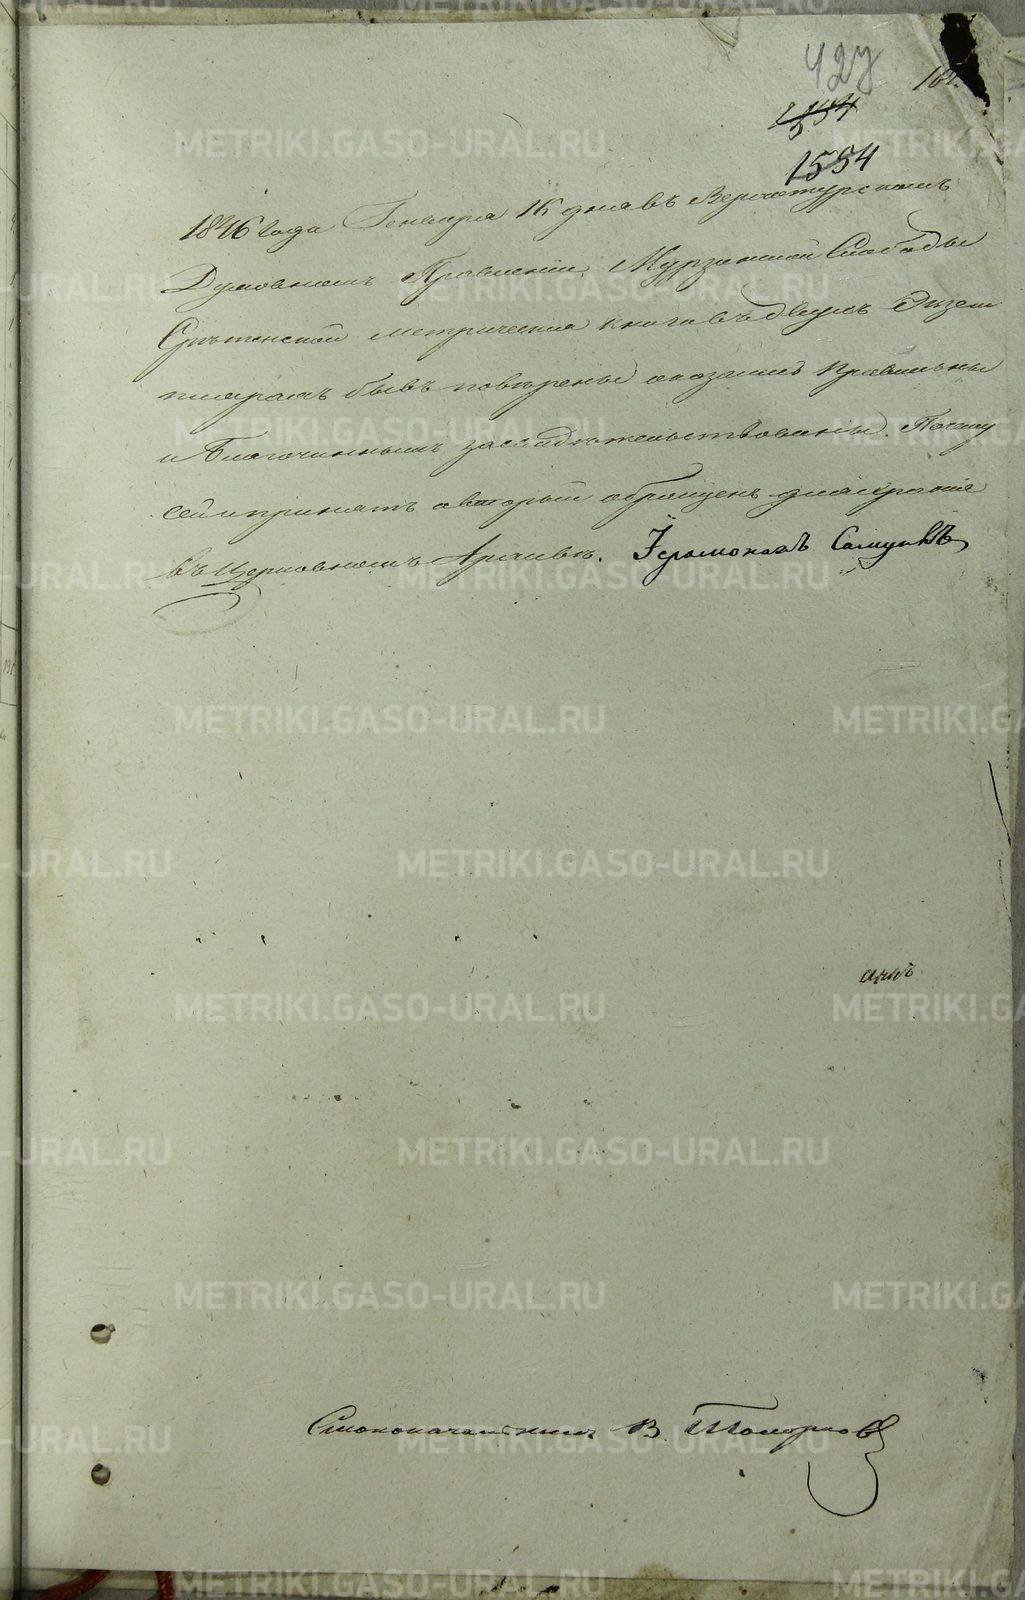 427
1554
1554
1846 Года Генваря 16 дня въ Верхотурскомъ
Духовномъ Правленіи, Мурзинской Слободы
Срѣтенской метрическія книги въ двухъ Экзем
плярахъ бывъ повѣрены оказались правильны
и Благочиннымъ засвидѣтельствованы. Почему
сей и принятъ а вторый обращенъ для храненія
въ Церковномъ Архивѣ. Іеромонахъ
Столоначальникъ В.
METRIKI.GASO-URAL.RU